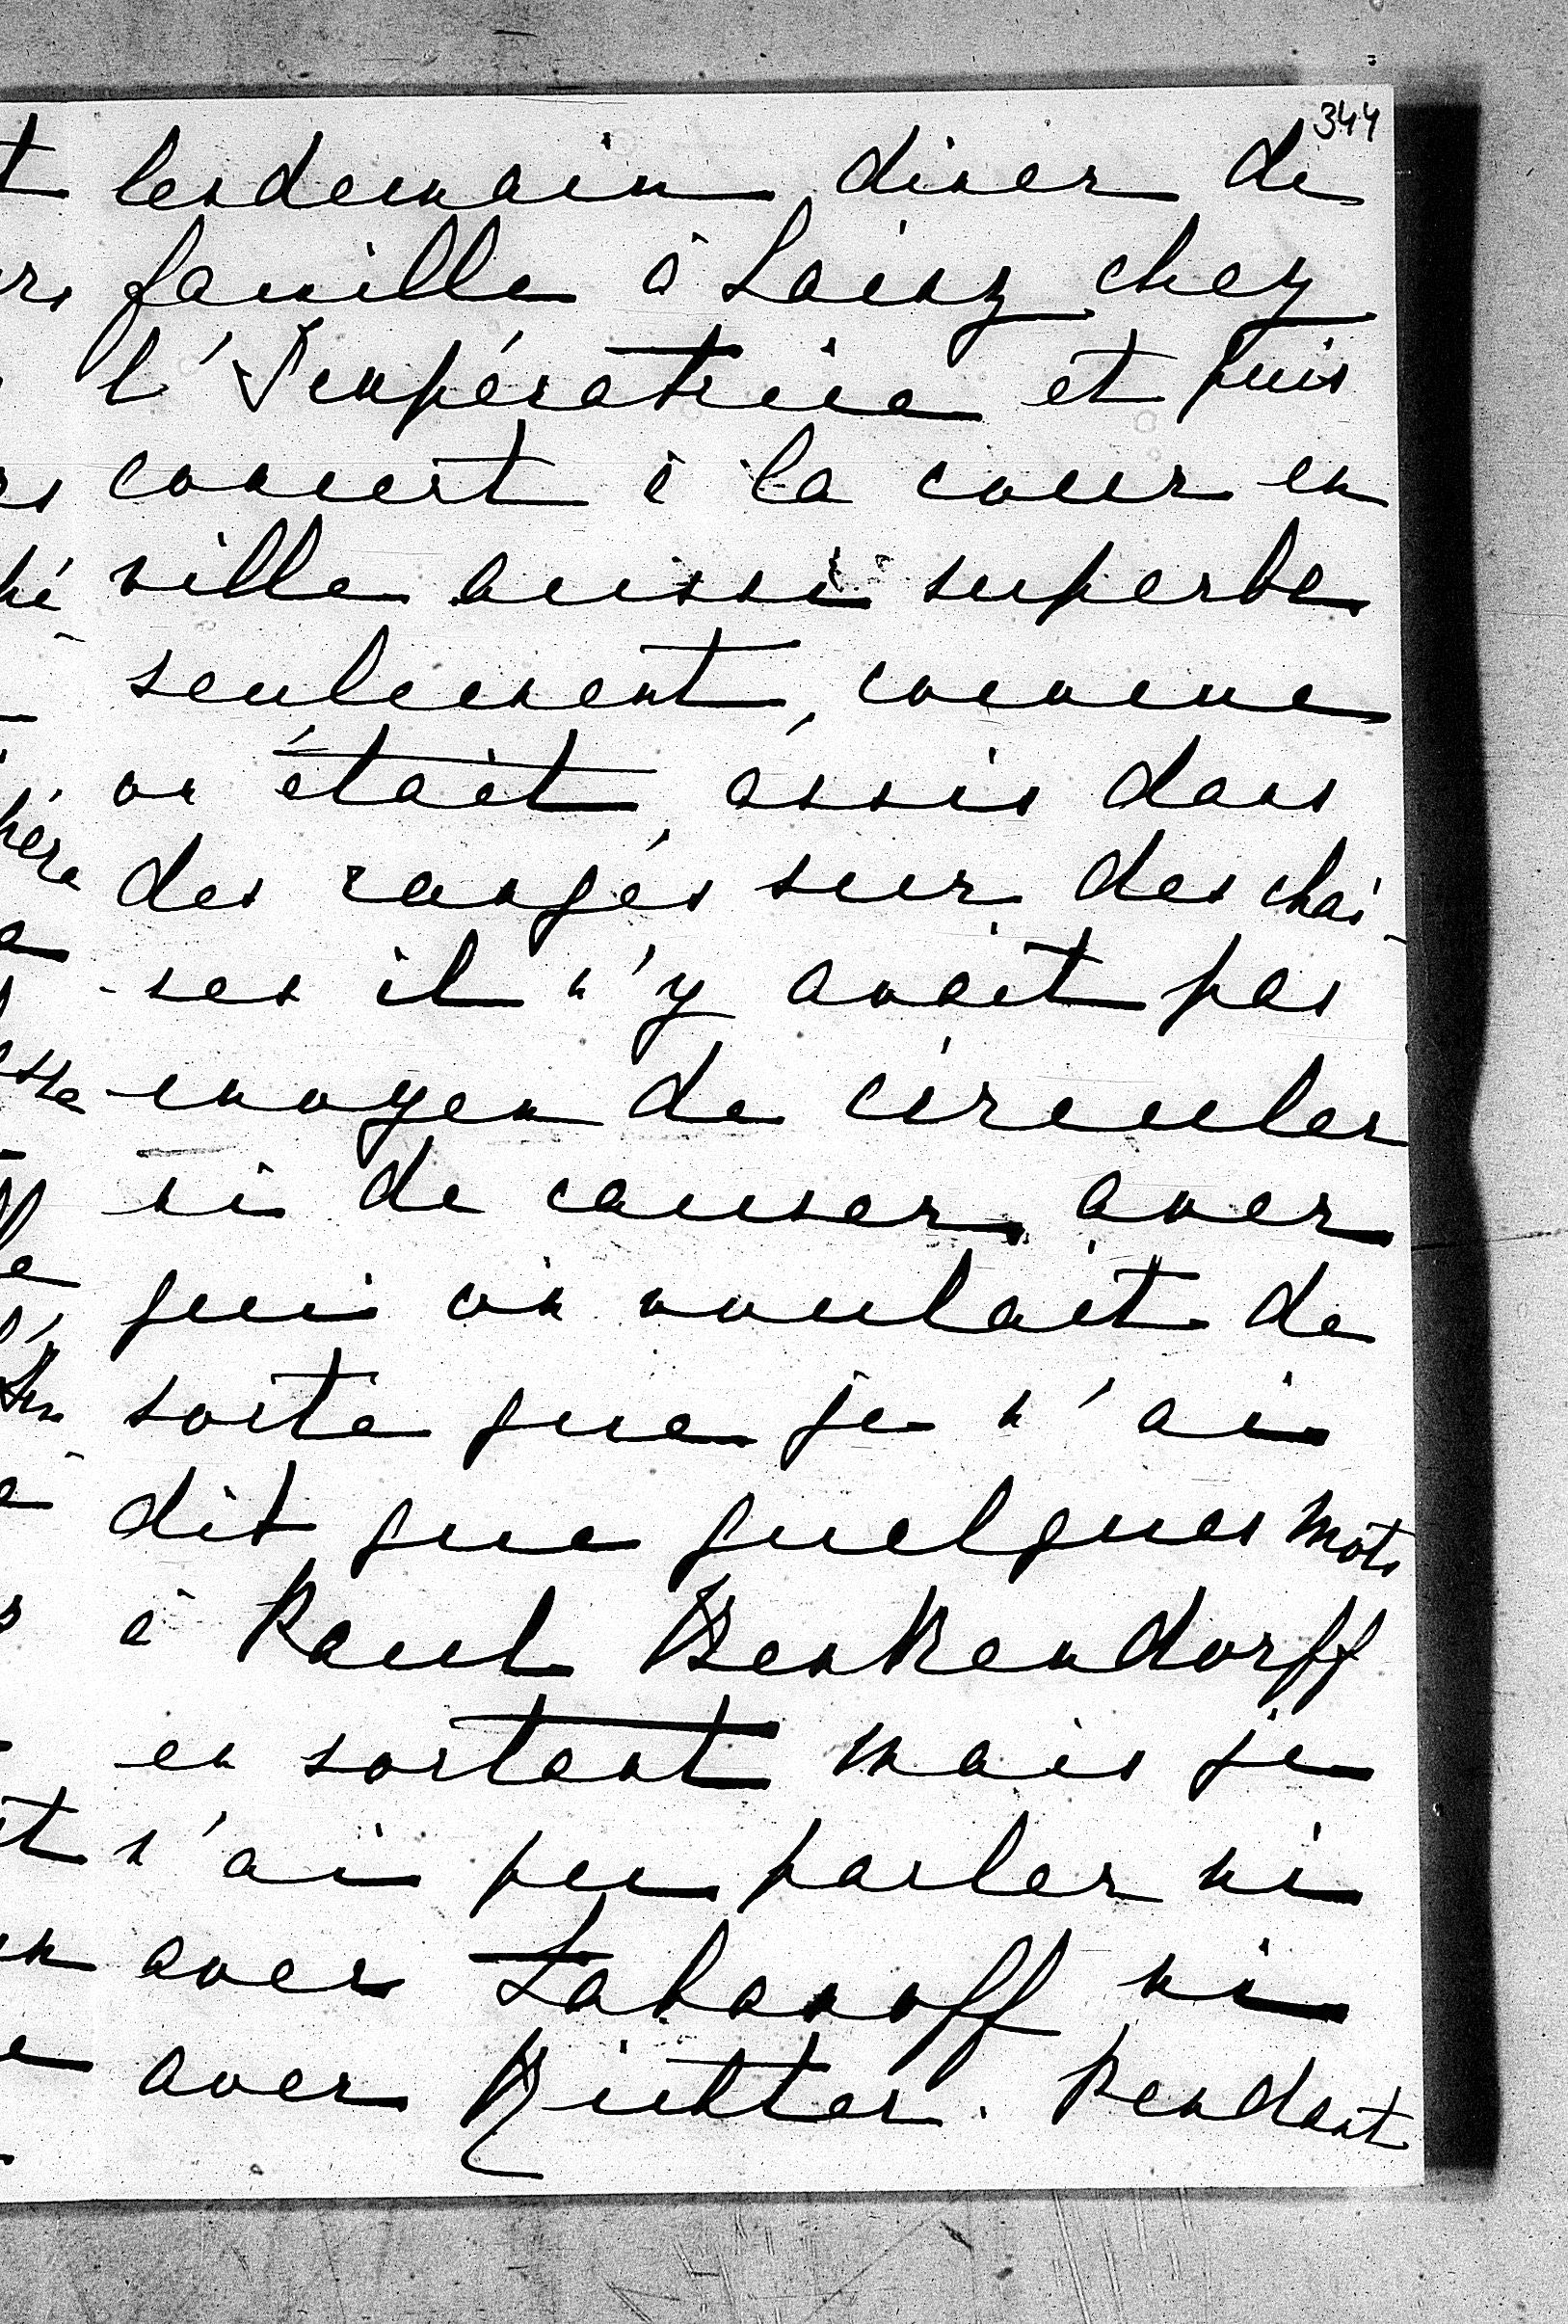 344
lendemain diner de
famille à Lainz chez
l'Impératrice et puis
concert à la cour en
ville aussi superbe
seulement, comme
on était, assis dans
des rangés sur des chai-
-ses il n'y avait pas
moyen de circuler
ni de causer avec
qui on voulait de
sorte que je n'ai
dit que quelques mots
à Paul Benkendorff
en sortant mais je
n'ai pu parler ni
avec Labanoff ni
avec Richter. Pendant